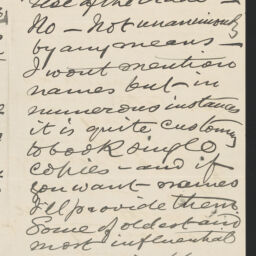 use of the trade -
No - Not unanimously
by any means -
I wont mention
names but - in
numerous instances
it is quite customary
to book single
copies - and if
you want - names
I'll provide them
Some of oldest and
most influential